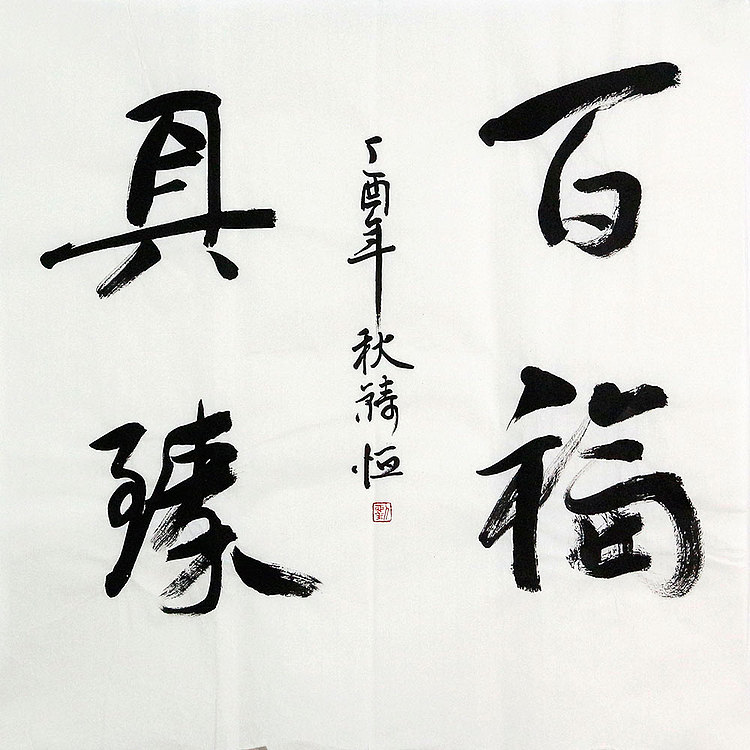 百福
具臻
丁酉年秋
恒